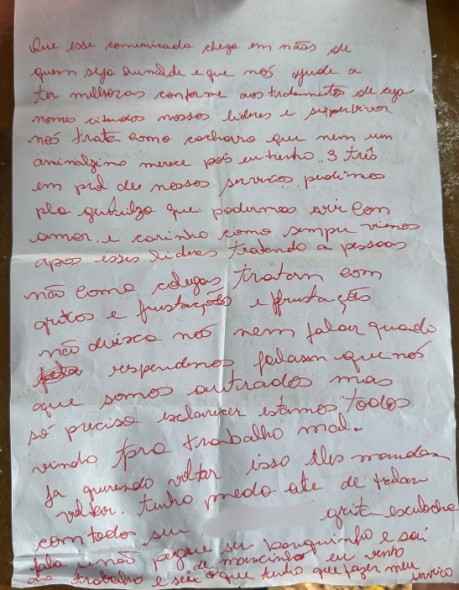 Que esse comunicado chega em mãos de
quem seja humilde e que nós ajude a
ter milhoras conforme aos tratamentos de cujo
nomes citandos nossos lideres e supervisor
nós trata como cachorro que nem um
animalzino merece pois eu tenho 3 três
em prol de nossos serviços pedimos
pla gentileza que podermos vir com
amor e carinho como sempre viemos
após esses lideres tratando a pessoas
não como colegas tratam com
gritos e frustações e frustação
não deixa nós nem falar quado
respondemos falam que nós
que somos autrados mas
só preciso esclarecer estamos todos
vindo pro trabalho mal.
Ja querendo voltar isso eles mandam
voltar. tenho medo ate de falar
com todos seu grita esculacha
fala se não pegare seu banquinho e sai
de mancinho eu venho
ao trabalho e sei o que tenho que fazer meu serviço